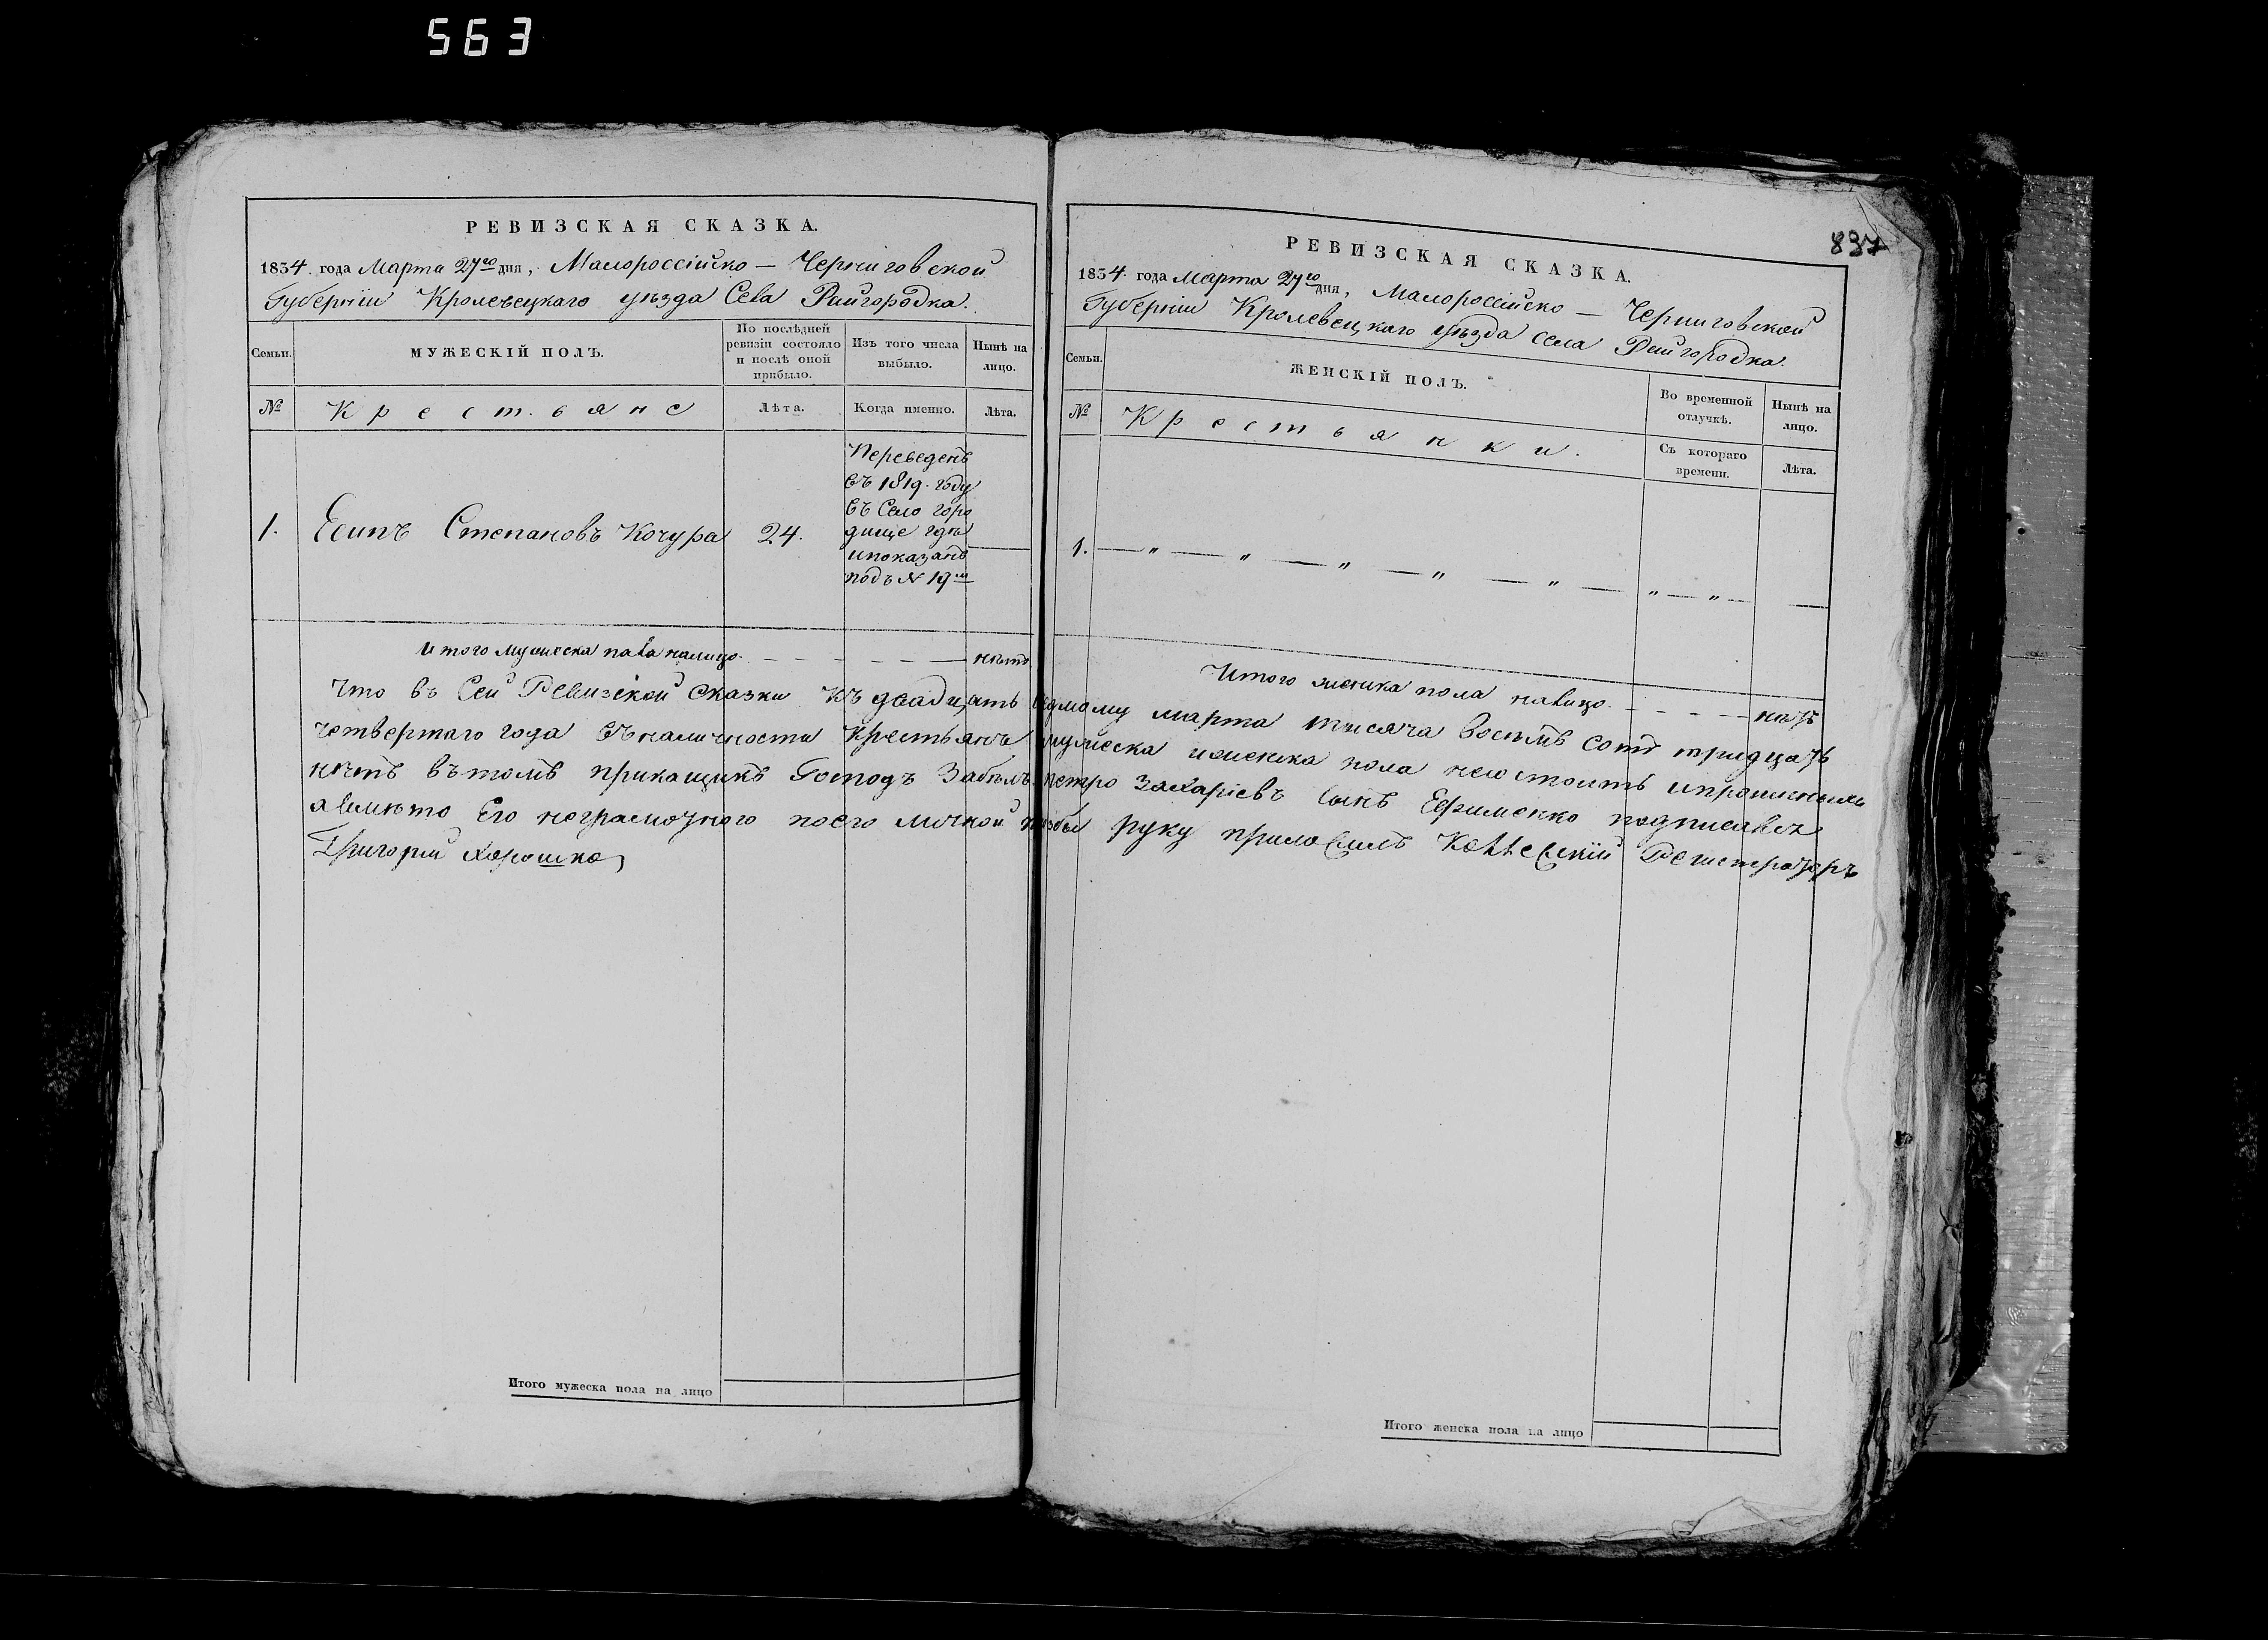 563
837
РЕВИЗСКАЯ СКАЗКА.
1834. года Марта 27го дня, Малороссійско — Черниговской
Губерніи Кролевецкаго уѣзда Села Райгородка.
Семьи.
МУЖЕСКІЙ ПОЛЪ.
По послѣдней
ревизіи состояло
и послѣ оной
прибыло.
Изъ того числа
выбыло.
Нынѣ на
лицо.
№
Крестьяне
Лѣта.
Когда именно.
Лѣта.
1.
Есипъ Степановъ Кочура
24.
Переведенъ
въ 1819. году
въ Село Горо
дище гдѣ
и показанъ
подъ N 19м
Итого мужеска пола налицо. — — — — — — нѣтъ
РЕВИЗСКАЯ СКАЗКА.
1834. года Марта 27го дня, Малороссійско — Черниговской
Губерніи Кролевецкаго уѣзда села Райгородка.
Семьи.
ЖЕНСКІЙ ПОЛЪ.
Во временной
отлучкѣ.
Нынѣ на
лицо.
№
Крестьянки.
Съ котораго
времени.
Лѣта.
1. — " — " — " — " — " — " — " — —
Итого женска пола налицо. — — — — нѣтъ
Что въ Сей Ревизской Сказки къ двадцать седмому марта тисяча восемъ сотъ тридцать
четвертаго года въ наличности крестьянъ мужеска и женска пола не состоитъ и
нѣтъ въ томъ прикащикъ Господъ Петро Захаріевъ сынъ Ефименко подписавсь
а вмѣсто Его неграмотного по его личной прозбы руку приложилъ Коллежскій Регистраторъ
Григорій Хорошко
Итого мужеска пола на лицо
Итого женска пола на лицо